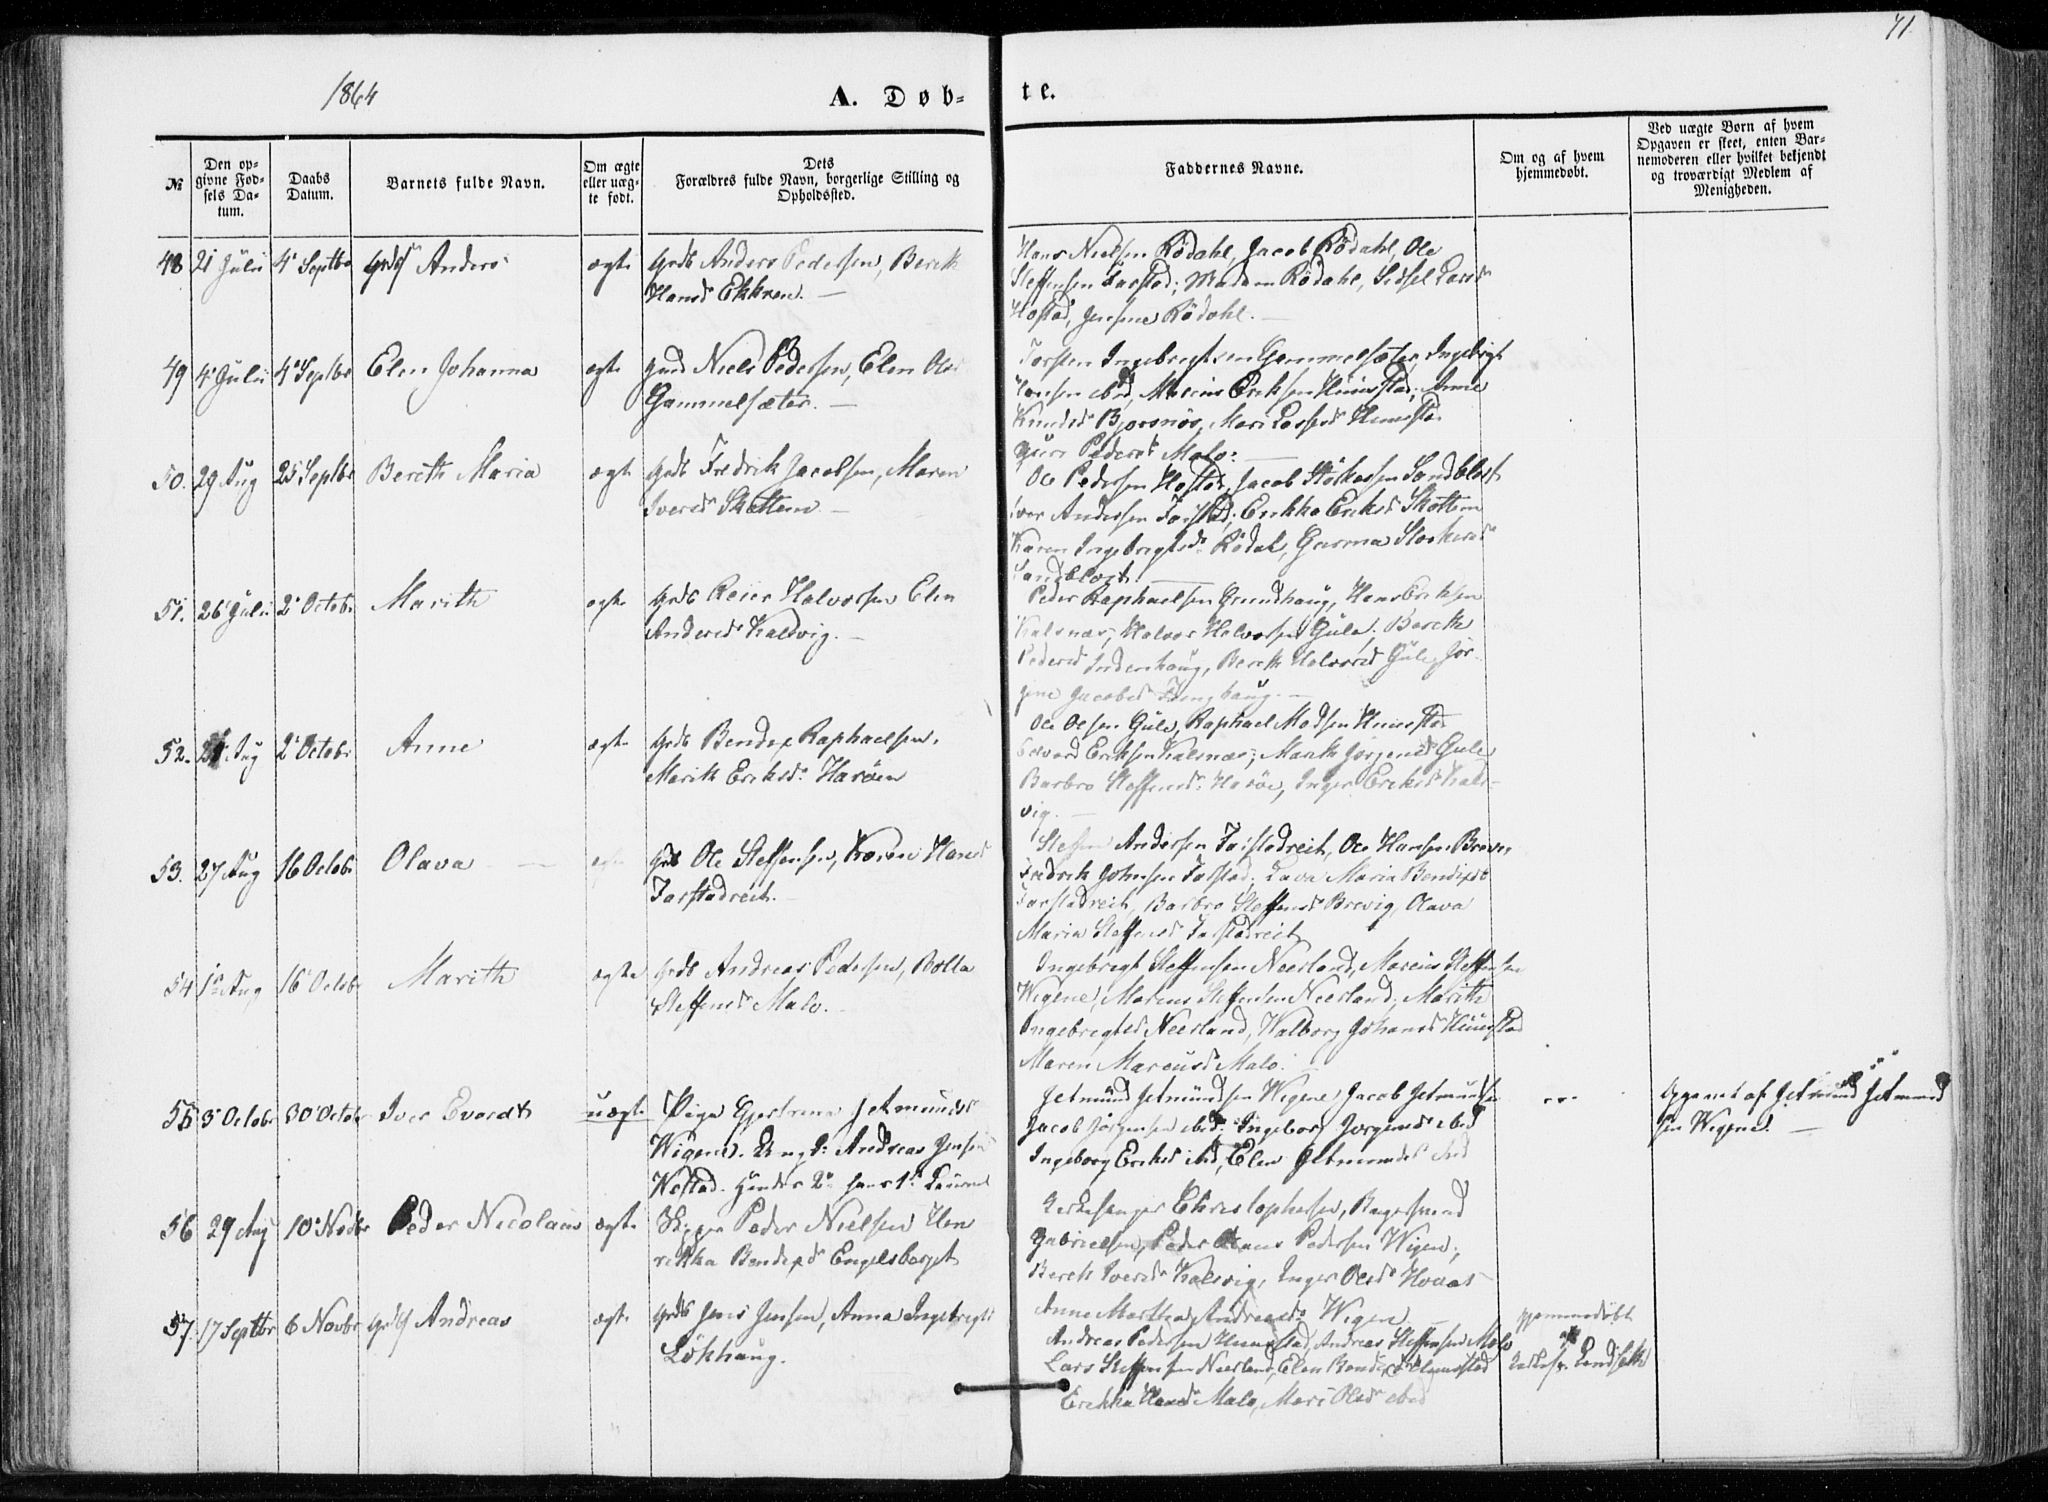 71
1864
A. Døb-
te.
№
Den op-
givne Fød-
sels Da-
tum.
Daabs
Datum.
Barnets fulde Navn.
Om ægte
eller uæg-
te født.
Dets
Forældres fulde Navn, borgerlige Stilling og
Opholdssted.
Faddernes Navne.
Om og af hvem
hjemmedøbt.
Ved uægte Børn af hvem
Opgaven er skeet, enten Bar-
nemoderen eller hvilket bekjendt
og troværdigt Medlem af
Menigheden.
48 21 Juli 4 Septbr Anders ægte Grdb Anders Pedersen, Bereth
Hansd
Hans Nielsen Rödahl, Jacob Rödahl, Ole
Steffensen Farstad; Madam Rödahl, Sidsel Larsd
Hostad, Rödahl.
49 4 Juli 4 Septbr Elen Johanna ægte Niels Pedersen, Elen Olsd
Gammelsæter.
Torsten Ingebrigtsen Gammelsæter, Ingebrigt
Hansen ibd, Marius Eriksen Huustad; Anne
Knudsd Bjørnös, Mari Lassesd Huustad
Guri Pedersd Malo.
50. 29 Aug 25 Septbr Bereth Maria ægte Grdb Fredrik Jacobsen, Maren
Iversd Skottem
Ole Pedersen Hostad, Jacob Sandblost
Iver Andersen Farstad; Erikka Eriksd Skottem
Karen Ingebrigtsd Rödal,
Sandblost.
51. 26 Juli 2 Octobr Marith ægte Grdb Reier Halvorsen Elen
Andersd Kalsvig.
Peder Raphaelsen Hans Eriksen
Kalsnæs, Halvor Halvorsen Gule; Bereth
Pedersd Bereth Halvorsd Gule, Jør-
gine Jacobsd
52. Aug 2 Octobr Anne ægte Grdb Bendix Raphaelsen,
Marith Eriksd Haröen
Ole Olsen Gule, Raphael Madsen Huustad
Edvard Eriksen Kalsnæs; Marith Jørgensd Gule
Barbro Steffensd Haröe, Inger Eriksd Kals-
vig.
53. 27 Aug 16 Octobr Olava Grdb Ole Steffensen, Karen Hansd
Farstadreit.
Steffen Andersen Farstadreit, Ole Hansen
Fredrik Johnsen Farstad; Lava Maria Bendixd
Farstadreit, Barbro Steffensd Brevig, Olava
Maria Steffensd Farstadreit
54 1 Aug 16 Octobr Marith ægte Grdb Andreas Pedersen, Bolla
Steffensd Malo.
Ingebrigt Steffensen Neerland, Marius Steffensen
Wigene, Marius Steffensen Neerland; Marith
Ingebrigtsd Neerland, Walborg Johansd Huustad
Maren Mariusd Malo.
55 3 Octobr 30 Octobr Iver Evardt uægte Pige Gjertrine Jetmundsd
Wigene. Ungk: Andreas Jensen
Westad. Hendes 2 hans 1
Jetmund Jetmundsen Wigene Jacob Jetmundsen
Jacob Jørgensen ibd: Ingeborg Jørgensd ibd
Ingeborg Eriksd ibd, Elen Jetmundsd ibd
Opgivet af Jetmund Jetmund
sen Wigene.
56 29 Aug 10 Novbr Peder Nicolaus ægte Peder Nielsen Hen
rikka Bendixd Engelsberget
Kirkesanger Christophersen,
Gabrielsen, Peder Pedersen Wigen;
Bereth Iversd Kalsvig, Inger Olsd
Anne Martha Andreasd Wigene
57. 17 Septbr 6 Novbr Andreas ægte Grdb Jens Jensen, Anna Ingebrigtsd
Lökhaug.
Andreas Pedersen Huustad, Andreas Steffensen Malo
Lars Steffensen Neerland, Elen Bendixd Huustad
Erikka Hansd Malo, Mari Olsd ibd
hjemmedöbt
af